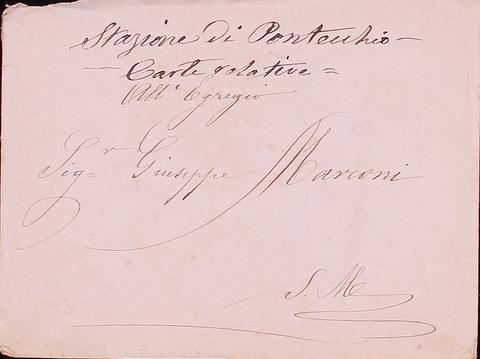 Stazione di Pontecchio —
— Carte relative =
All' Egregio
Sig.r Giuseppe Marconi
S. M.